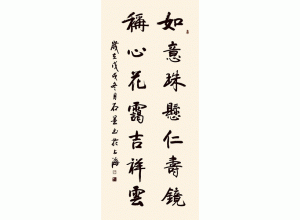 如意珠懸仁壽鏡
稱心花靄吉祥雲
歲在戊戌冬月石並書於上海